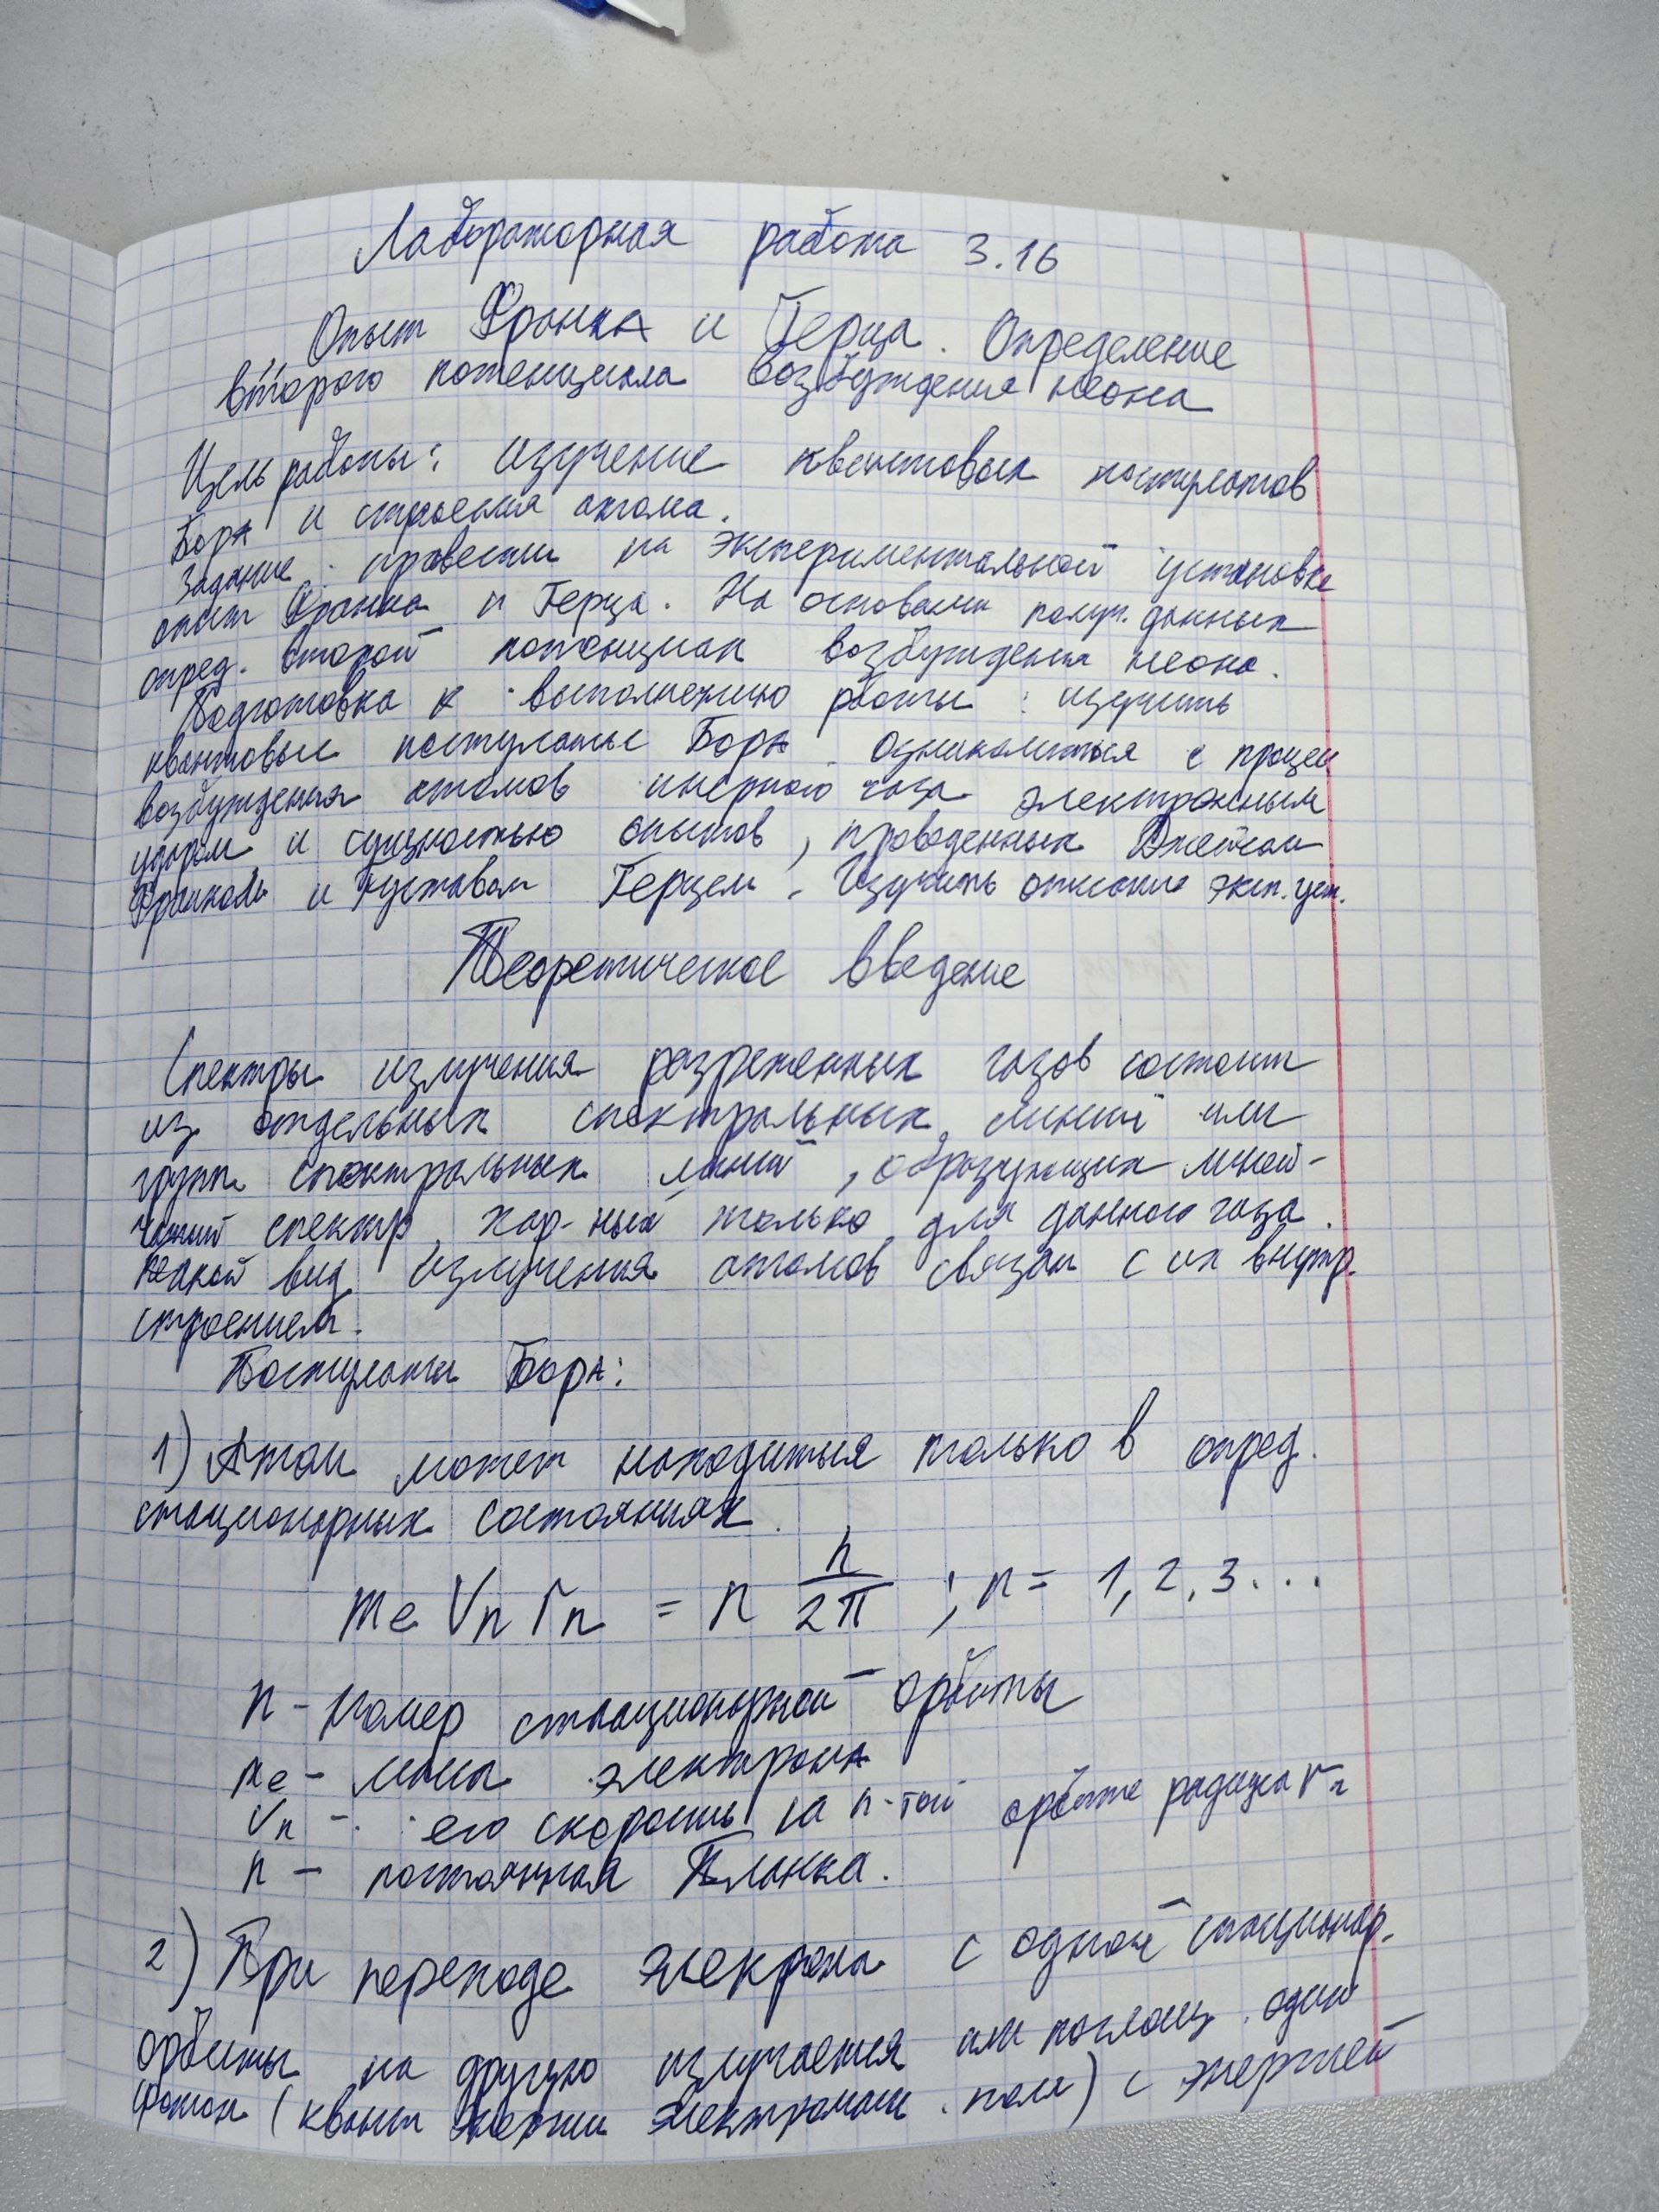 Лабораторная работа 3.16
Опыт Франка и Герца. Определение
второго потенциала возбуждения неона
Цель работы: изучение квантовых постулатов
Бора и строения атома.
Задание: провести на экспериментальной установке
опыт Франка и Герца. На основании получ. данных
опред. второй потенциал возбуждения неона.
Подготовка к выполнению работы: изучить
квантовые постулаты Бора. Ознакомиться с процес
возбуждения атомов инертного газа электронным
ударом и сущностью опытов, проведенных Джеймсом
Франком и Густавом Герцем. Изучить описание эксп. уст.
Теоретическое введение
Спектры излучения разреженных газов состоит
из отдельных спектральных линий или
групп спектральных линий, образующих линей-
чатый спектр, хар-ный только для данного газа.
вид излучения атомов связан с их внутр.
строением.
Постулаты Бора:
1) Атом может находиться только в опред.
стационарных состояниях.
me Vn rn = n h/2π ; n = 1, 2, 3...
n - номер стационарной орбиты
me - масса электрона
Vn - его скорость на n-той орбите радиуса rn
h - постоянная Планка.
2) При переходе элекрона с одной стационар.
орбиты на другую излучается или поглощ. один
фотон (квант энергии электромагн. поля) с энергией